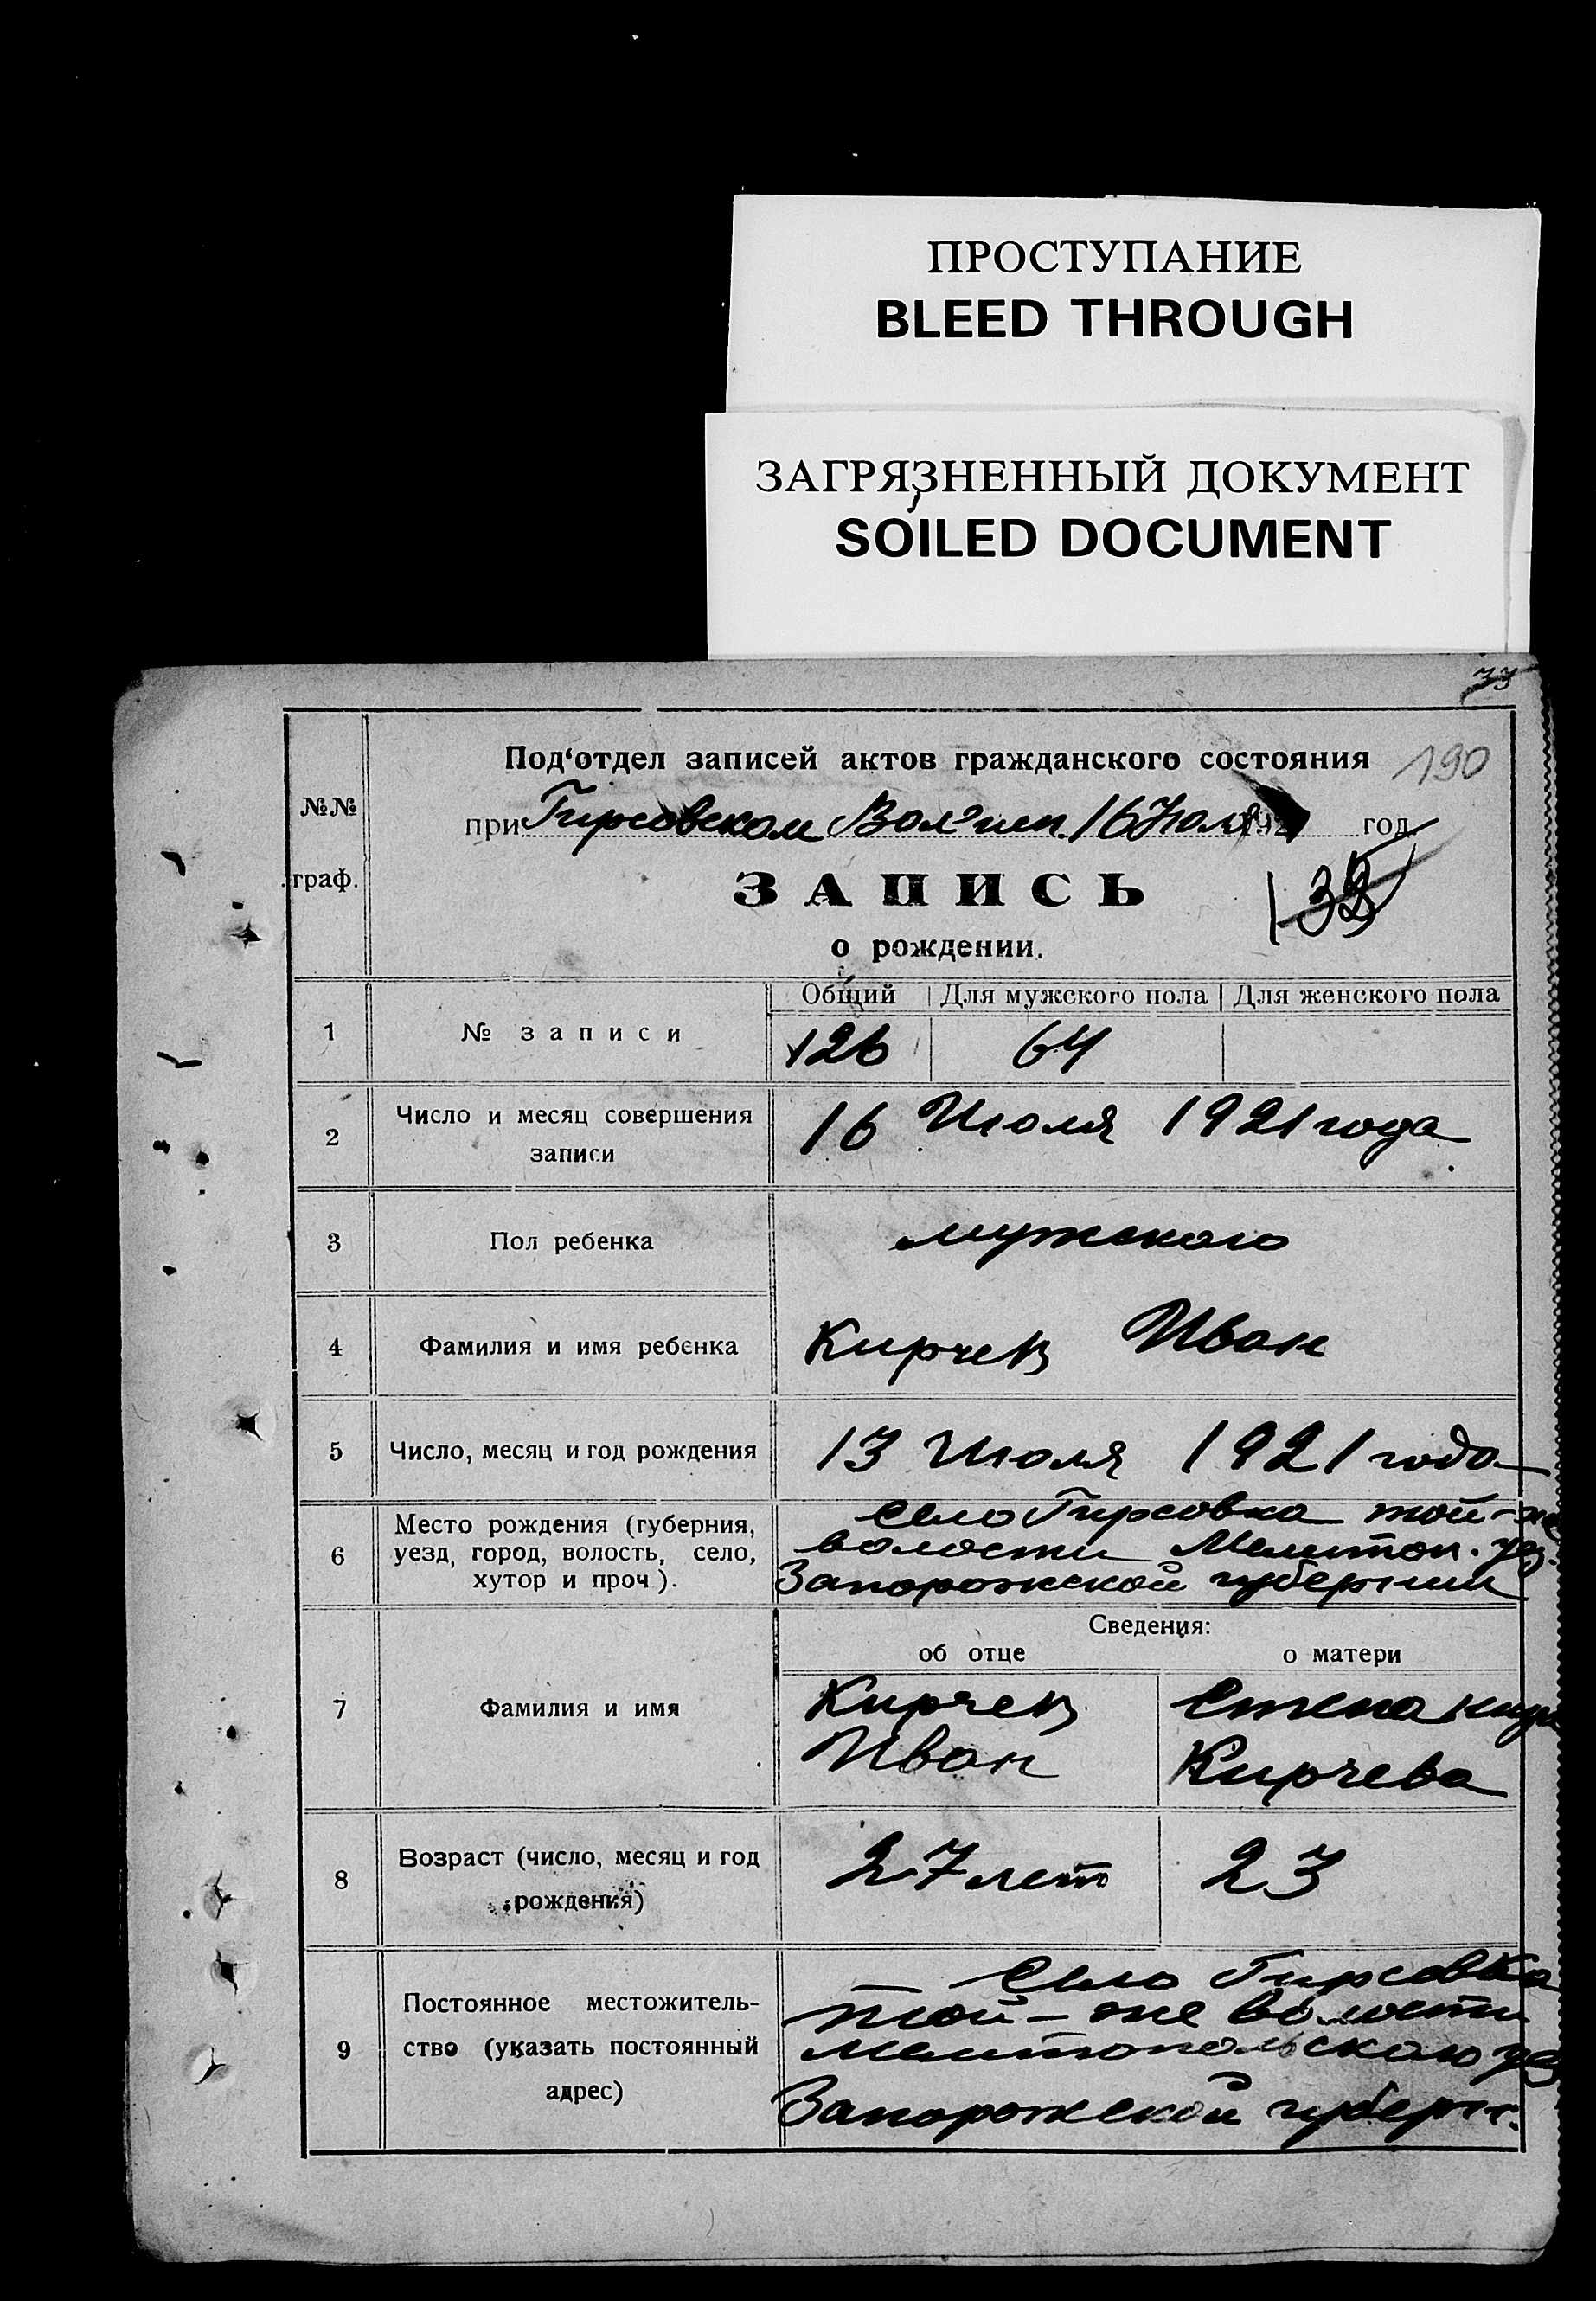 ПРОСТУПАНИЕ
BLEED THROUGH
ЗАГРЯЗНЕННЫЙ ДОКУМЕНТ
SOILED DOCUMENT
33
Под‘отдел записей актов гражданского состояния 190
№№ при Гирсовском Вол исп. 16 Июля 192 год
граф. ЗАПИСЬ
о рождении.
Общий Для мужского пола Для женского пола
1 № записи 126 64
2 Число и месяц совершения 16 Июля 1921 года
записи
3 Пол ребенка мужского
4 Фамилия и имя ребенка Кирчев Иван
5 Число, месяц и год рождения 13 Июля 1921 года
6 Место рождения (губерния, село Гирсовка той-же
уезд, город, волость, село, волости Мелитоп. уез.
хутор и проч.). Запорожской губернии
Сведения:
об отце о матери
7 Фамилия и имя Кирчев
Иван Кирчева
8 Возраст (число, месяц и год 27 лет 23
рождения)
Село Гирсовка
9 Постоянное местожитель- той-же волости
ство (указать постоянный Мелитопольского уез
адрес) Запорожской губерн.